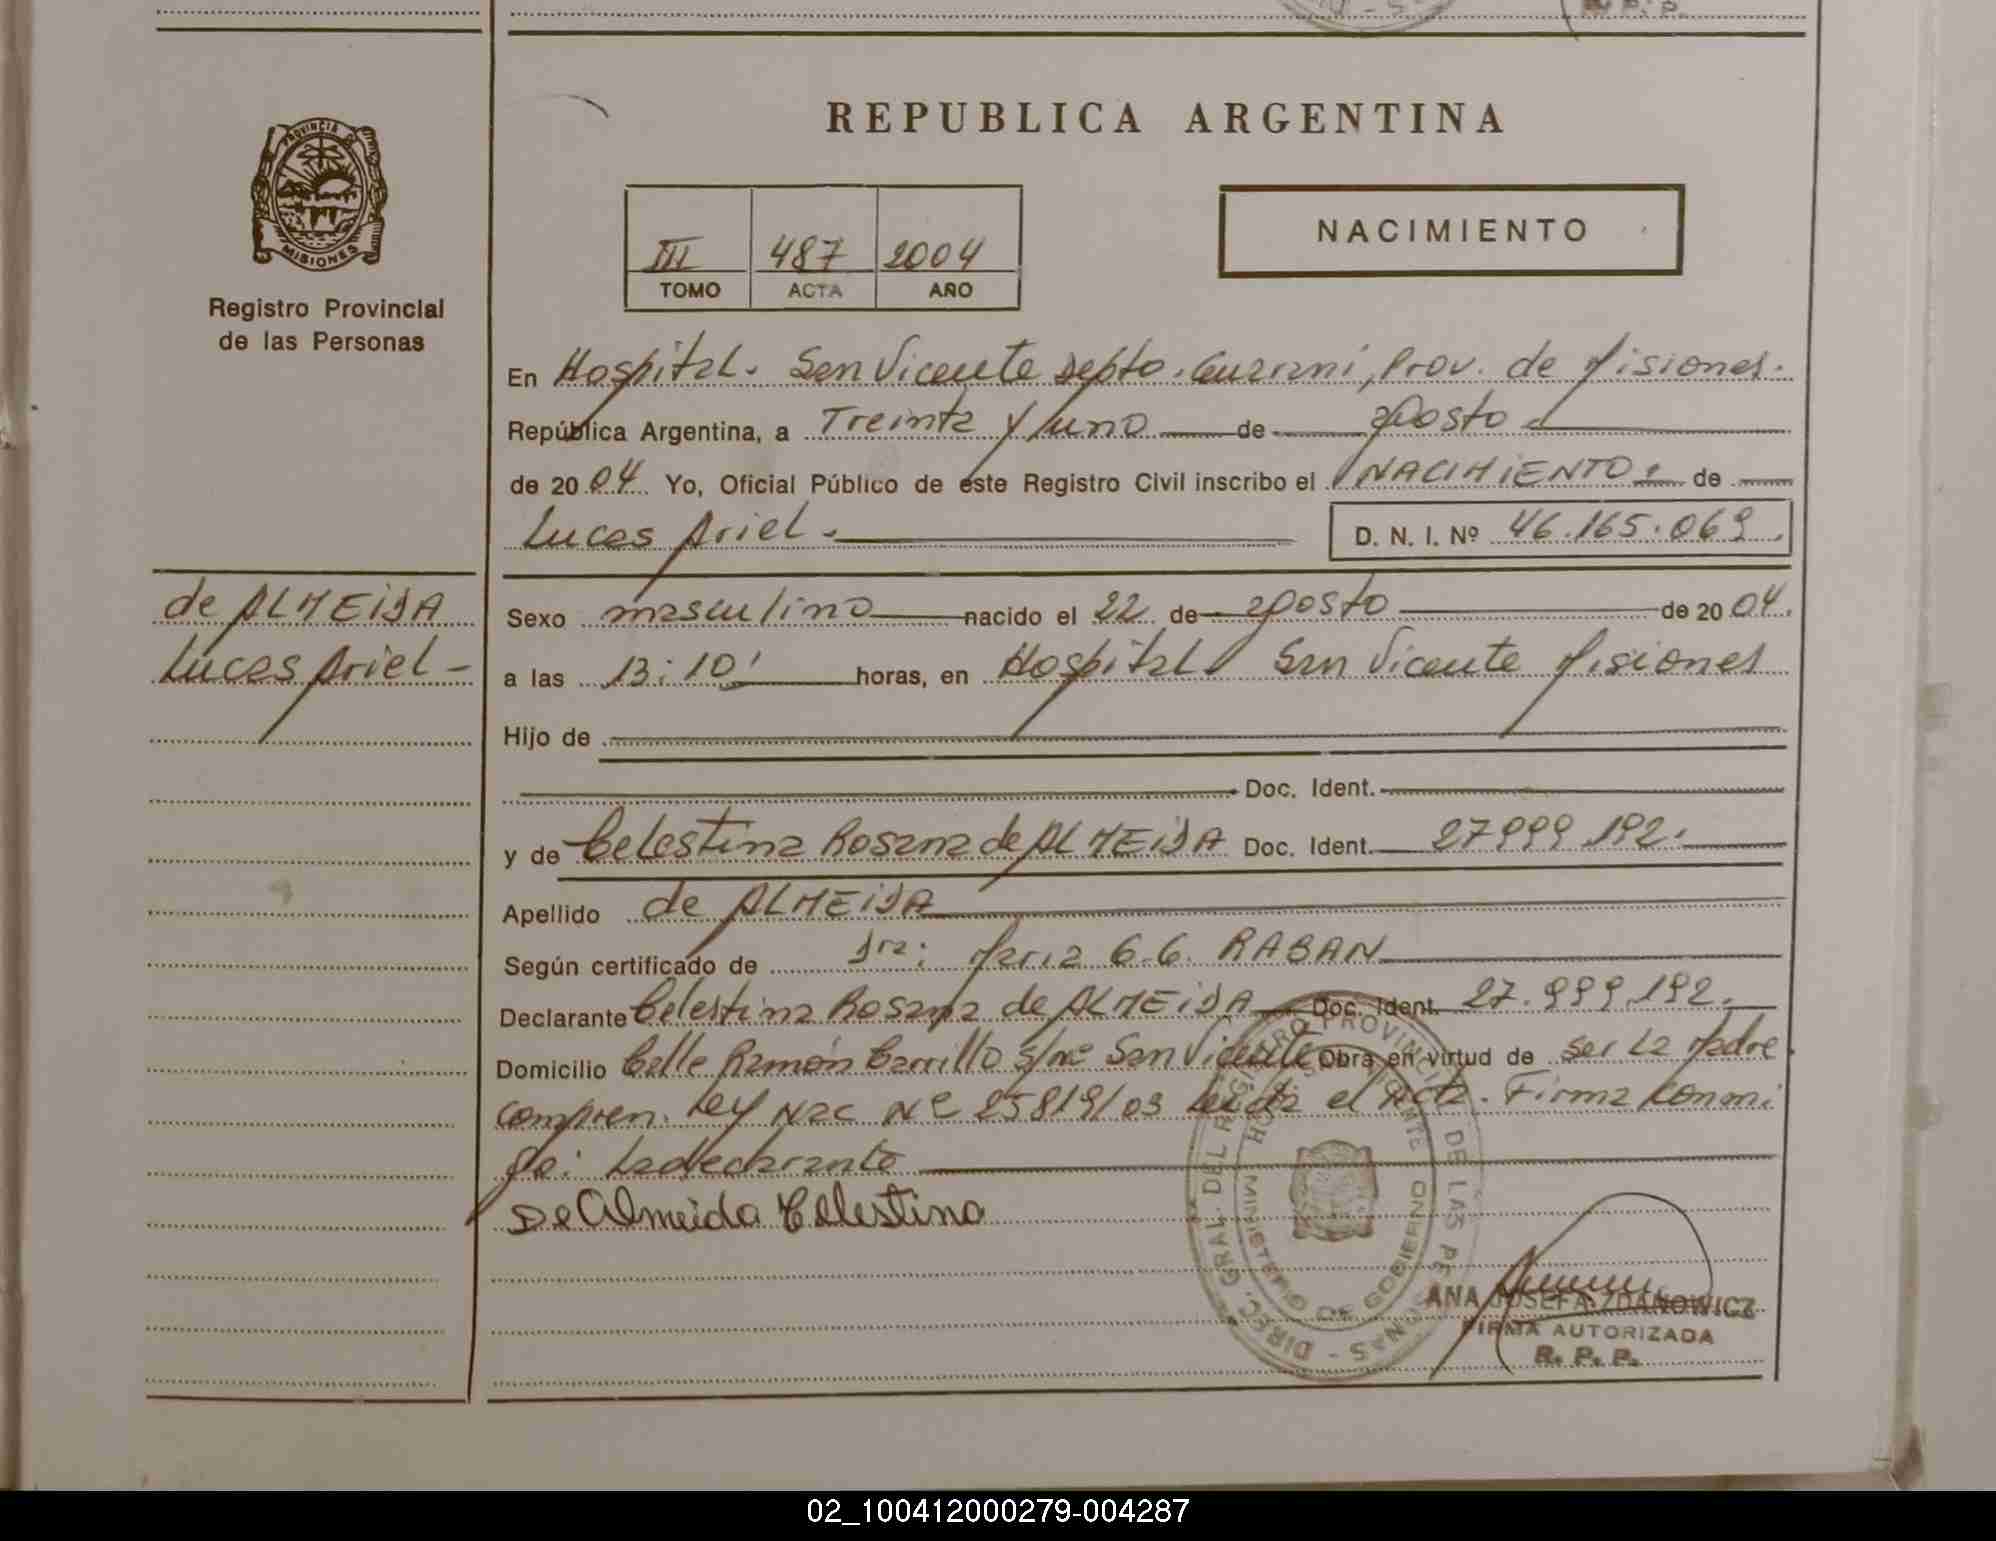 REPUBLICA ARGENTINA
PROVINCIA DE MISIONES
Registro Provincial
de las Personas
III 487 2004
TOMO ACTA AÑO
NACIMIENTO
En Hospital. San Vicente depto. Guarani, Prov. de Misiones.
República Argentina, a Treinta y uno de agosto
de 2004 Yo, Oficial Público de este Registro Civil inscribo el NACIMIENTO: de
Lucas Ariel. D. N. I. Nº 46.165.069.
de ALMEIDA
Lucas Ariel
Sexo masculino nacido el 22 de agosto de 2004.
a las 13:10' horas, en Hospital San Vicente Misiones
Hijo de
Doc. Ident.
y de Celestina Rosana de ALMEIDA Doc. Ident. 27999.192.
Apellido de ALMEIDA
Según certificado de Dra: Maria G. G. RABAN
Declarante Celestina Rosana de ALMEIDA Doc. Ident. 27.999.192.
Domicilio Calle Ramón Carrillo s/nº San Vicente Obra en virtud de ser La Madre
compren. Ley Nac Nº 25819/03 Leida el Acta. Firma conmi
go: La declarante
De Almeida Celestina
DIREC. GRAL. DEL REGISTRO PROVINCIAL DE LAS PERSONAS
MINISTERIO DE GOBIERNO
ANA JOSEFA ZDANOWICZ
FIRMA AUTORIZADA
R. P. P.
02_100412000279-004287